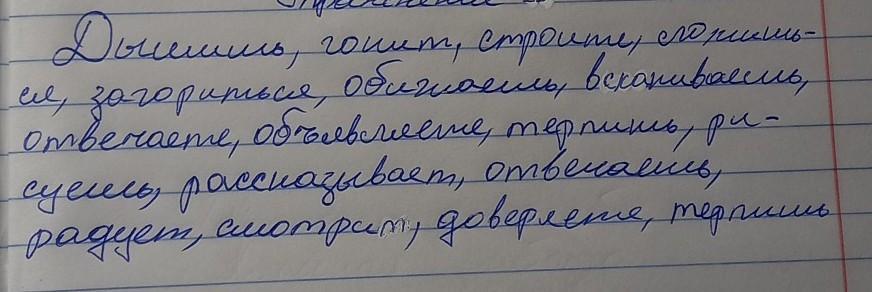 Дышишь, гонит, строите, сложишь-
ся, загориться, обижаешь, вскапываешь,
отвечаете, объявляете, терпишь, ри-
суешь, рассказывает, отвечаешь,
радует, смотрит, доверяете, терпишь